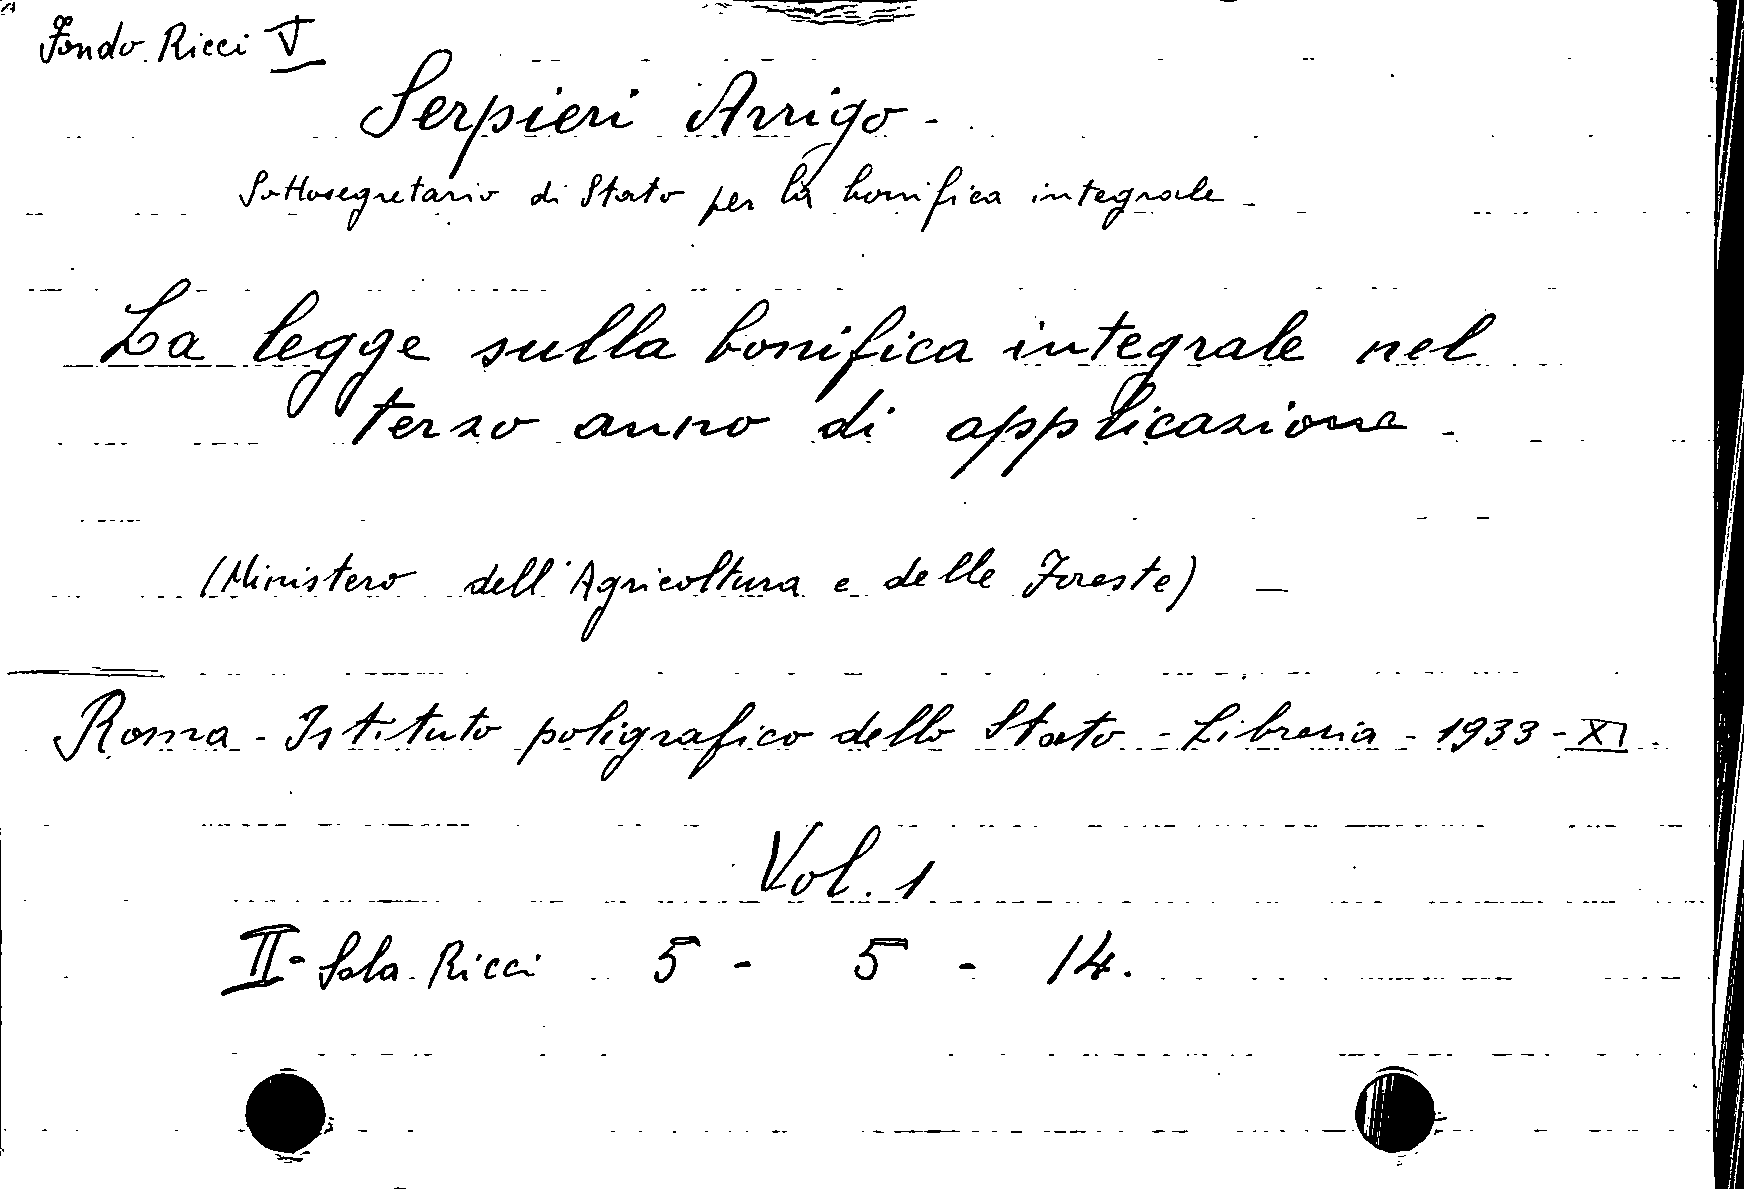 Fondo Ricci V
Serpieri Arrigo -
Sottosegretario di Stato per la bonifica integrale -
La legge sulla bonifica integrale nel
terzo anno di applicazione -
(Ministero dell'Agricoltura e delle Foreste) -
Roma - Istituto poligrafico dello Stato - Libreria - 1933 - XI
Vol. 1
II- Sala Ricci 5 - 5 - 14.